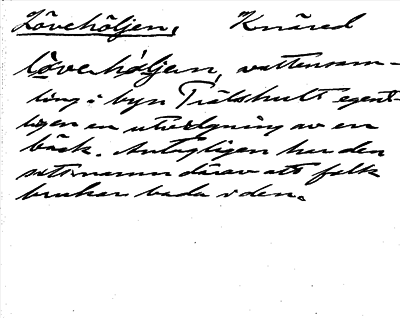 Lövehöljen, Knäred
Lövehöljen, vattensam-
ling i byn Trälshult egent-
ligen en utvidgning av en
bäck. Antagligen har den
sitt namn därav att folk
brukar bada i den.